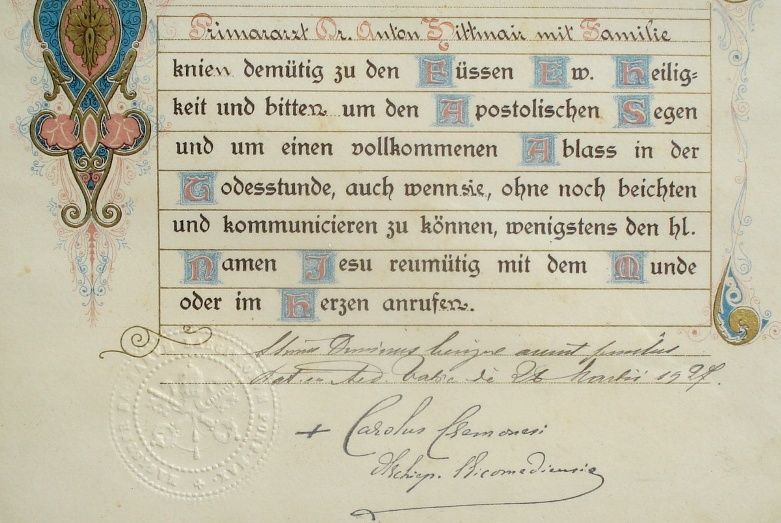 Primararzt Dr. Anton Hittmair mit Familie
knien demütig zu den Füssen Ew. Heilig-
keit und bitten um den Apostolischen Segen
und um einen vollkommenen Ablass in der
Todesstunde, auch wenn sie, ohne noch beichten
und kommunicieren zu können, wenigstens den hl.
Namen Jesu reumütig mit dem Munde
oder im Herzen anrufen.
Dominus benigne annuit
die 26 Martii 1927.
+ Carolus Cremonesi
Archiep. Nicomediensis